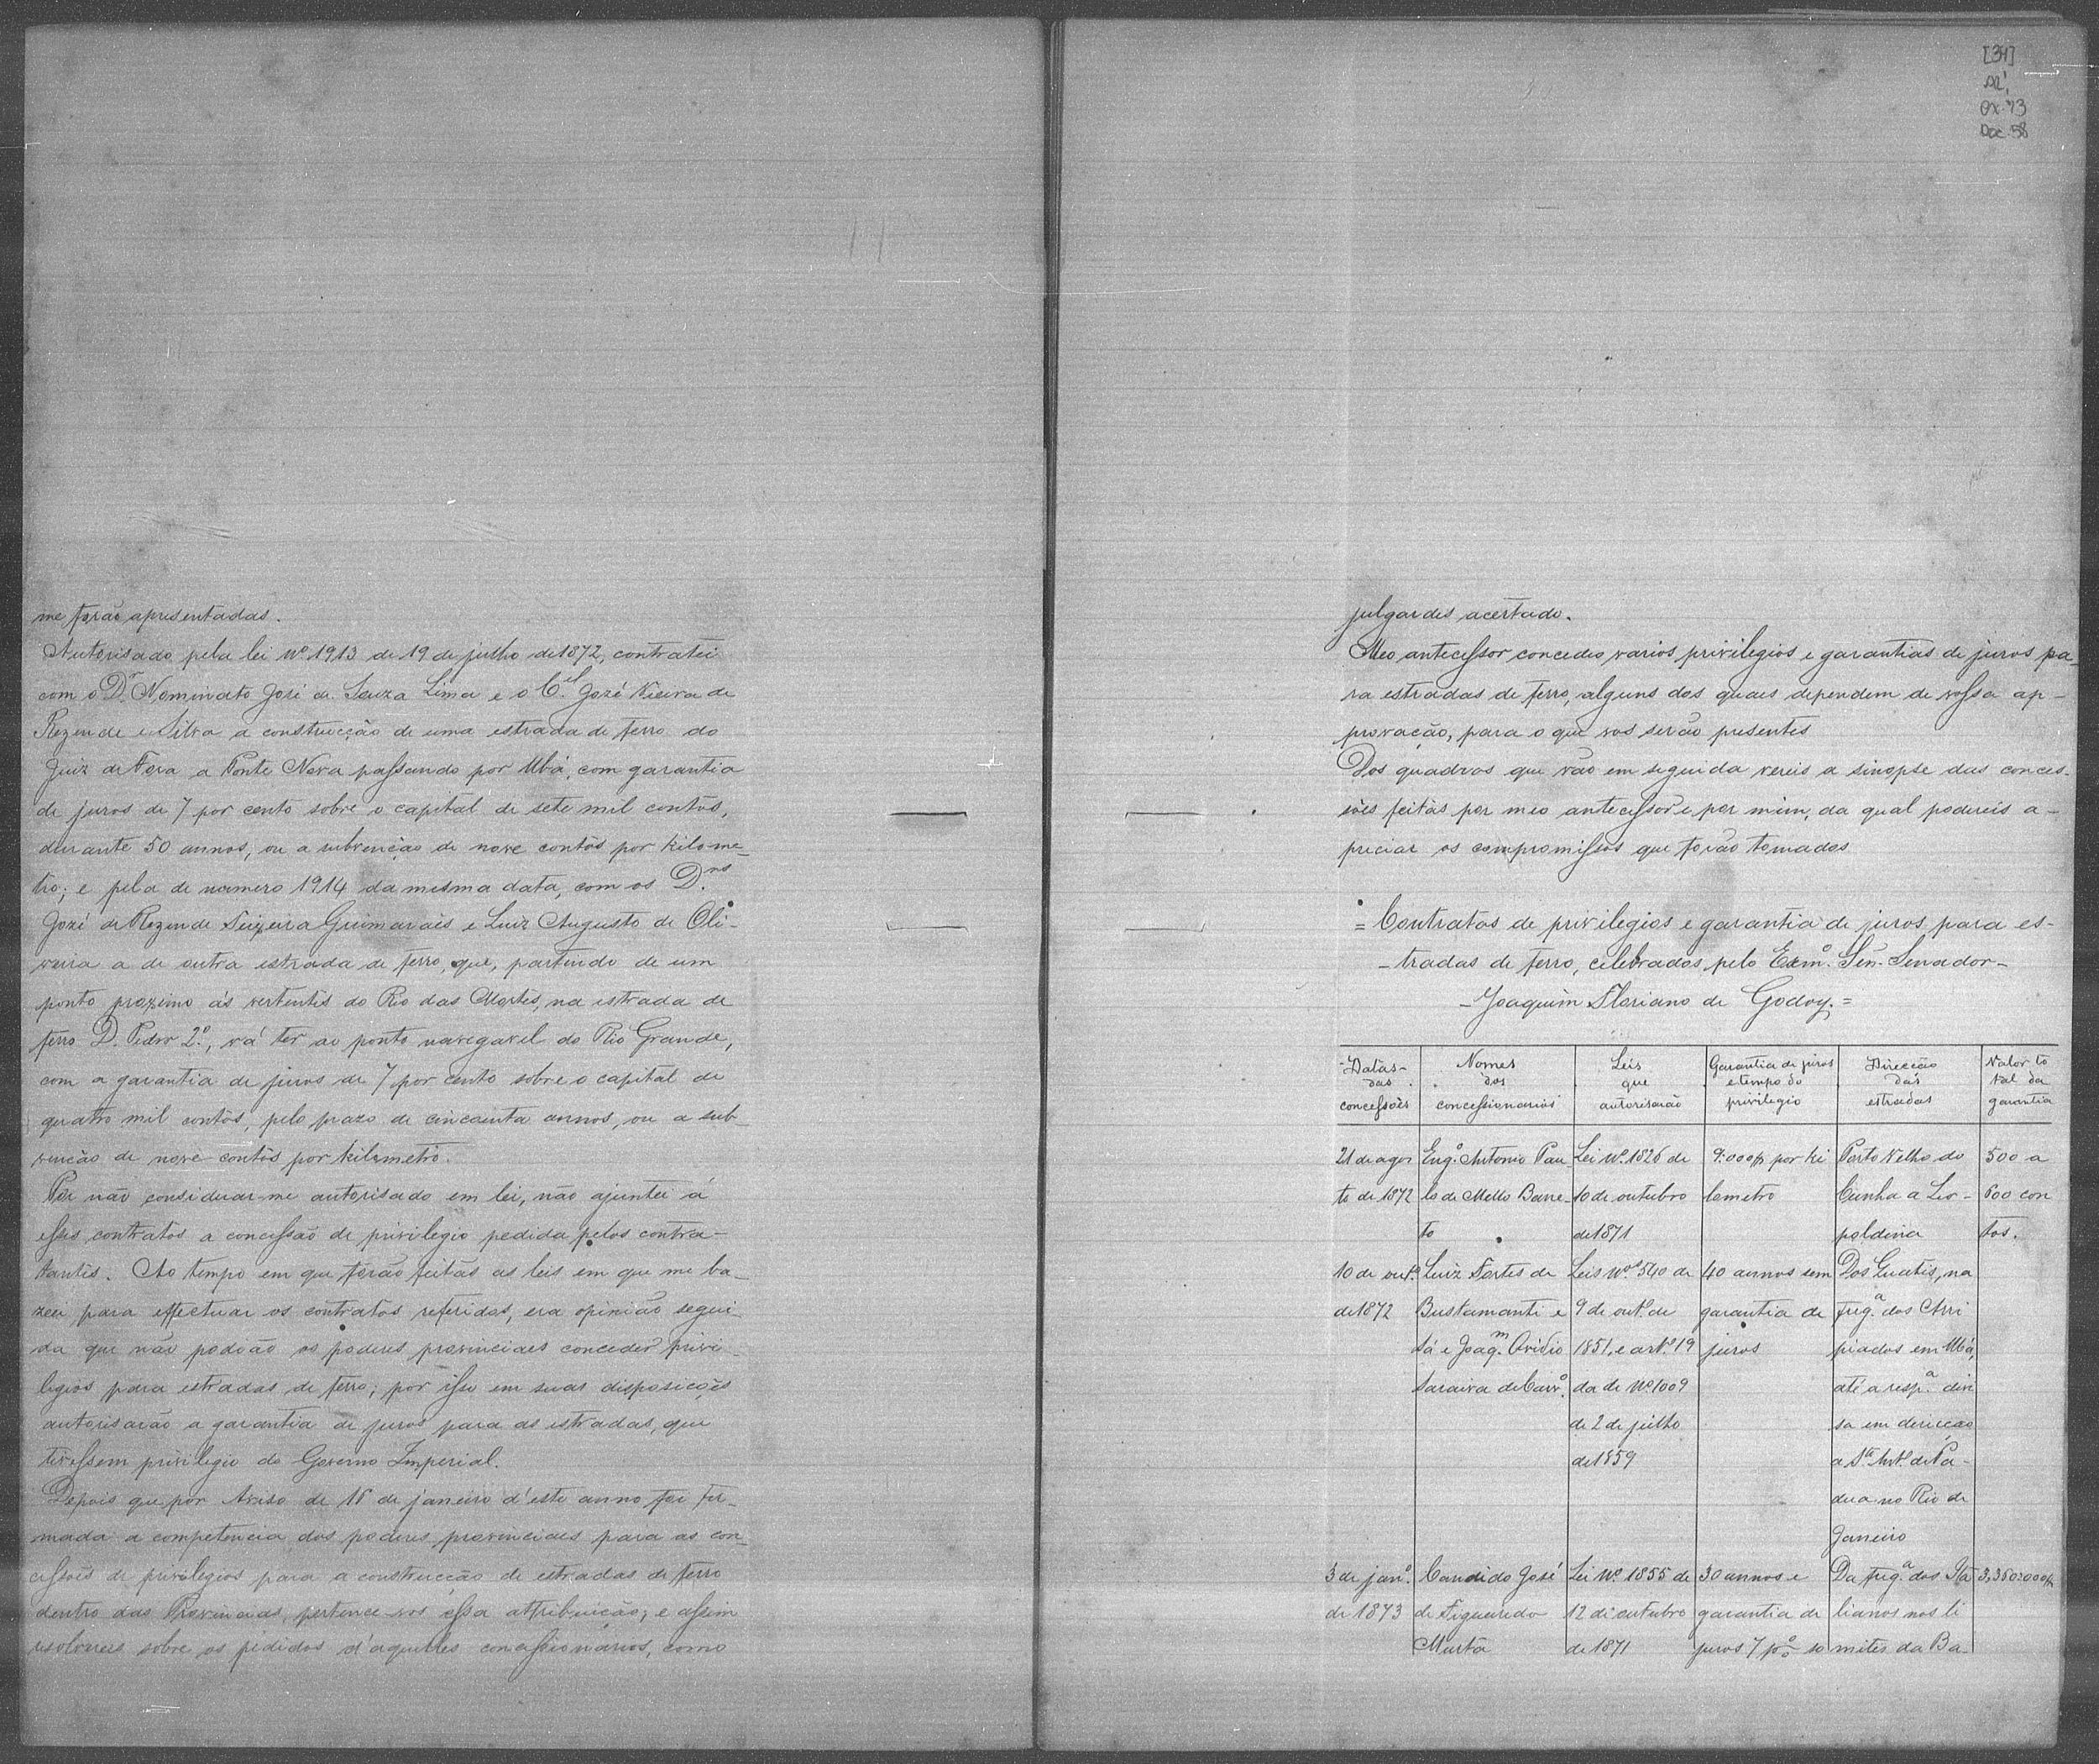 me forão apresentadas.
Autorisado pela lei nº 1913 de 19 de julho de 1872, contratei
com o Dr. Nominato José de Souza Lima e o C.el José Vieira de
Rezende e Silva a construcção de uma estrada de ferro do
Juiz de Fora a Ponte Nova passando por Ubá, com garantia
de juros de 7 por cento sobre o capital de sete mil contos,
durante 50 annos, ou a subvenção de nove contos por kilome-
tro; e pela de numero 1914 da mesma data, com os D.res
José de Rezende Teixeira Guimarães e Luiz Augusto de Oli-
veira a de outra estrada de ferro, que, partindo de um
ponto proximo ás vertentes do Rio das Mortes, na estrada de
ferro D. Pedro 2º, vá ter ao ponto navegavel do Rio Grande,
com a garantia de juros de 7 por cento sobre o capital de
quatro mil contos, pelo prazo de cincoenta annos, ou a sub-
venção de nove contos por kilometro.
Por não considerar-me autorisado em lei, não ajuntei á
esses contratos a concessão de privilegio pedida pelos contra-
tantes. Ao tempo em que forão feitas as leis em que me ba-
zeei para effectuar os contratos referidos, era opinião segui-
da que não podião os poderes provinciaes conceder privi-
legios para estradas de ferro; por isso em suas disposições
autorisarão a garantia de juros para as estradas, que
tivessem privilegio do Governo Imperial.
Depois que por Aviso de de janeiro d'este anno foi fir-
mada a competencia dos poderes provinciaes para as con-
cessões de privilegios para a construcção de estradas de ferro
dentro das Provincias, pertence-vos essa attribuição; e assim
resolvereis sobre os pedidos d'aquelles concessionarios, como
[34]
Cx. 73
Doc. 58
julgardes acertado.
Meo antecessor concedeo varios privilegios e garantias de juros pa-
ra estradas de ferro, alguns dos quaes dependem de vossa ap-
provação, para o que vos serão presentes
Dos quadros que vão em seguida vereis a sinopse das conces-
sões feitas por meo antecessor e por mim, da qual podereis a-
preciar os compromissos que forão tomados
= Contratos de privilegios e garantia de juros para es-
- tradas de ferro, celebrados pelo Exmº. Sen. Senador -
- Joaquim Floriano de Godoy. =
- Datas - Nomes Leis Garantia de juros Direcção Valor to
das dos que e tempo do das tal da
concessões concessionarios autorisarão privilegio estradas garantia
21 de agos Engº. Antonio Pau Lei Nº. 1826 de 9:000$ por ki Porto Velho do 500 a
to de 1872 lo de Mello Barre- 10 de outubro lometro Cunha a Leo- 600 con
to de 1871 poldina tos.
10 de outº. Luiz Fortes de Leis Nºs 540 de 40 annos sem Dos Guatis, na
de 1872 Bustamante e 9 de outº. de garantia de freg.a dos Arri
Sá e Joaq.m Ovidio 1851, e artº. 19 juros piados em Ubá,
Saraiva de Carvº. da de Nº. 1009 até a resp.a divi
de 2 de julho sa em direcção
de 1859 a Stº. Antº. de Pa-
dua no Rio de
Janeiro
3 de janº. Candido José Lei Nº. 1855 de 30 annos e Da freg.a dos Ita 3,350:000$
de 1873 de Figueiredo 12 de outubro garantia de lianos nos li
Murta de 1871 juros 7 p% so mites da Ba-